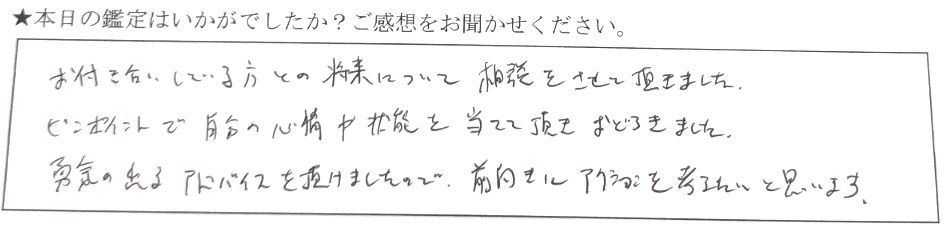 ★本日の鑑定はいかがでしたか？ご感想をお聞かせください。
お付き合いしている方との将来について相談をさせて頂きました。
ピンポイントで自分の心情や状態を当てて頂きおどろきました。
勇気の出るアドバイスを頂けましたので、前向きにアクションを考えたいと思います。